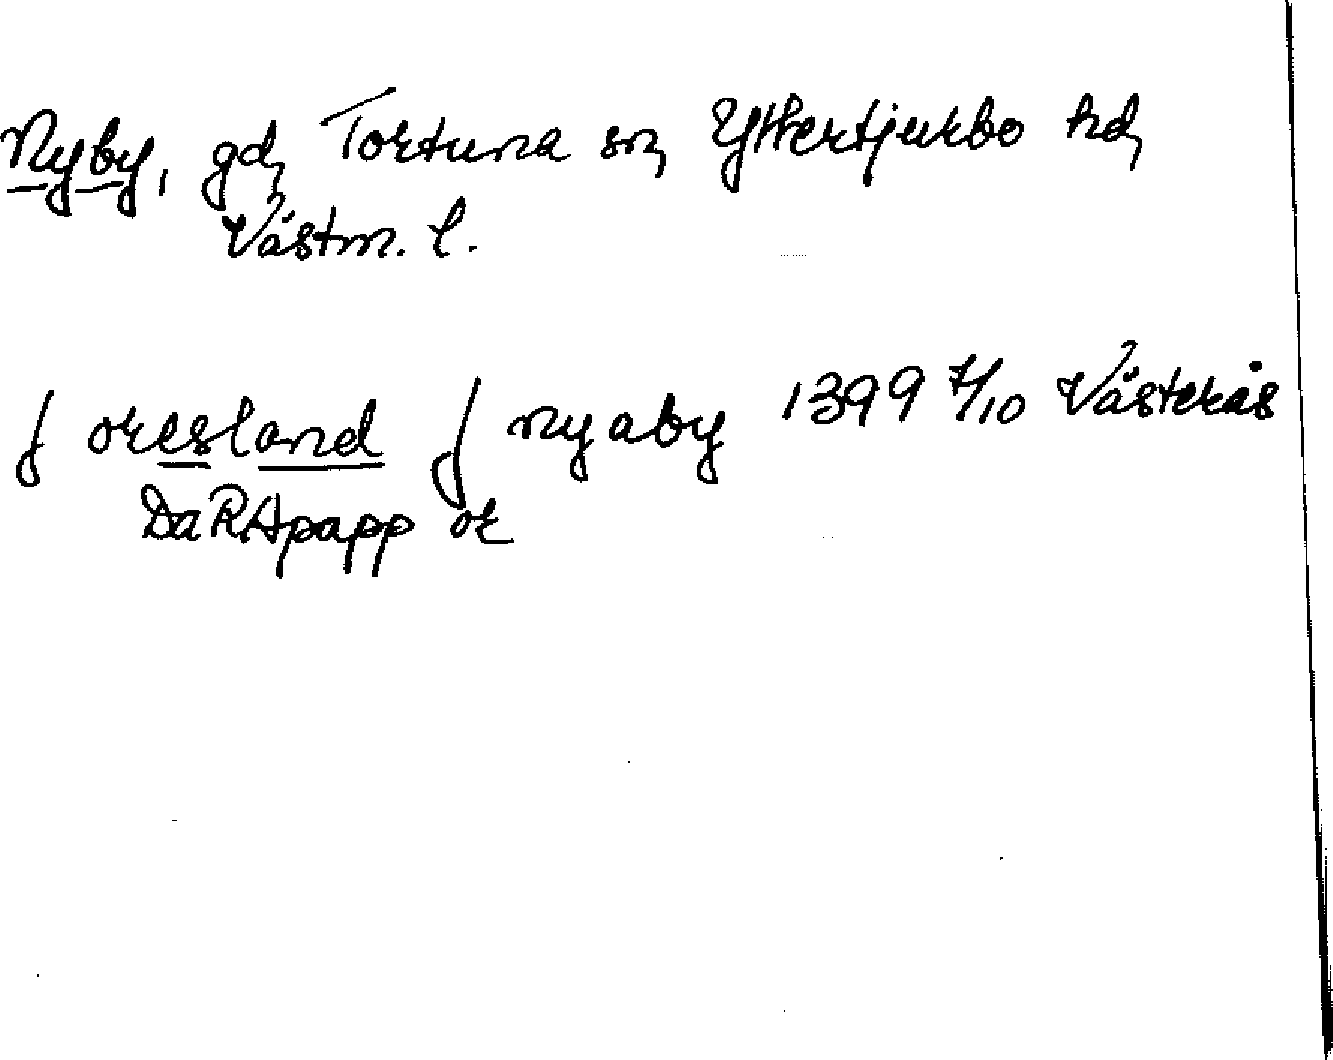 Nyby, gd, Tortuna sn, Yttertjurbo hd,
Västm. l.
j oresland j nyaby 1399 7/10 Västerås
DaRApapp or